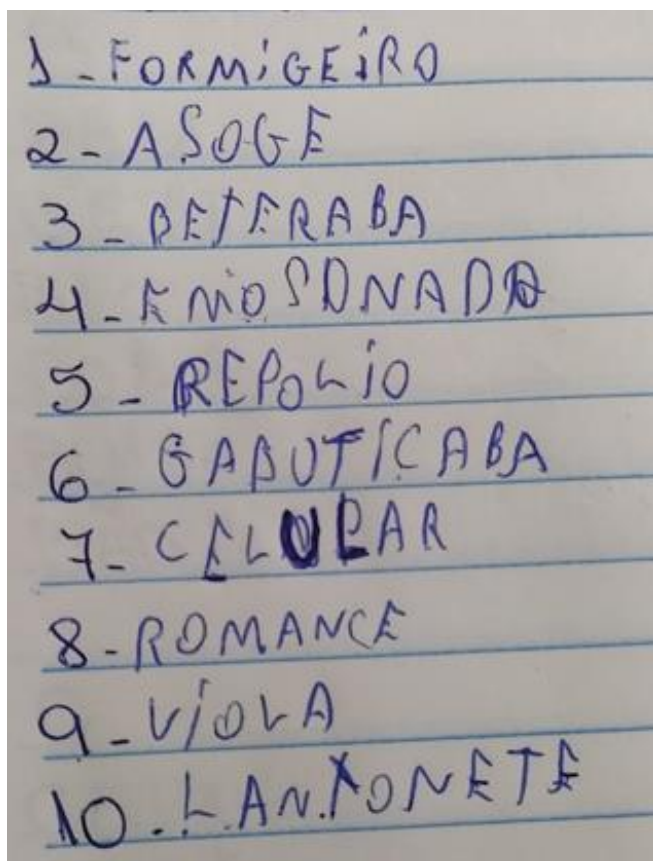 1-FORMiGEiRO
2-ASOGE
3-BETERABA
4-EMOSONADO
5-REPOLiO
6-GABUTICABA
7-CELULAR
8-ROMANCE
9-ViOLA
10.LANXONETE